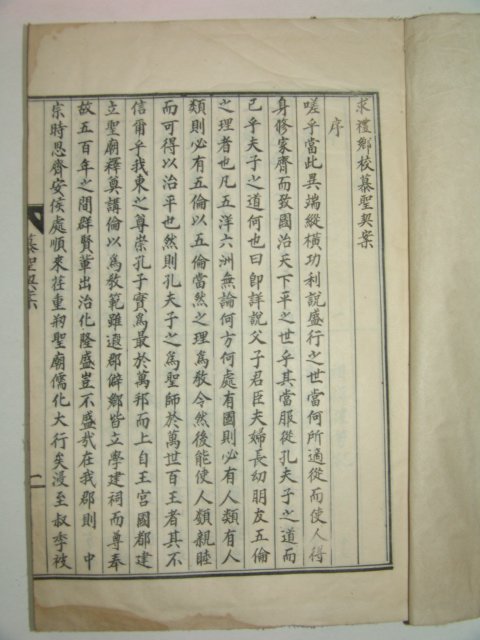 求禮鄉校慕聖契案
序
嗟乎當此異端縱橫功利說盛行之世當何所適從而使人得
身修家齊而致國治天下平之世乎其當服從孔夫子之道而
已乎夫子之道何也曰卽詳說父子君臣夫婦長幼朋友五倫
之理者也凡五洋六洲無論何方何處有國則必有人類有人
類則必有五倫以五倫當然之理爲敎令然後能使人類親睦
而可得以治平也然則孔夫子之爲聖師於萬世百王者其不
信爾乎我東之尊崇孔子實爲最於萬邦而上自王宮國都建
立聖廟釋奠講倫以爲敎範雖遐郡僻鄕皆立學建祠而尊奉
故五百年之間群賢輩出治化隆盛豈不盛哉在我郡則 中
宗時恩齊安侯處順來莅重刱聖廟儒化大行矣浸至叔季被
慕聖契案
二